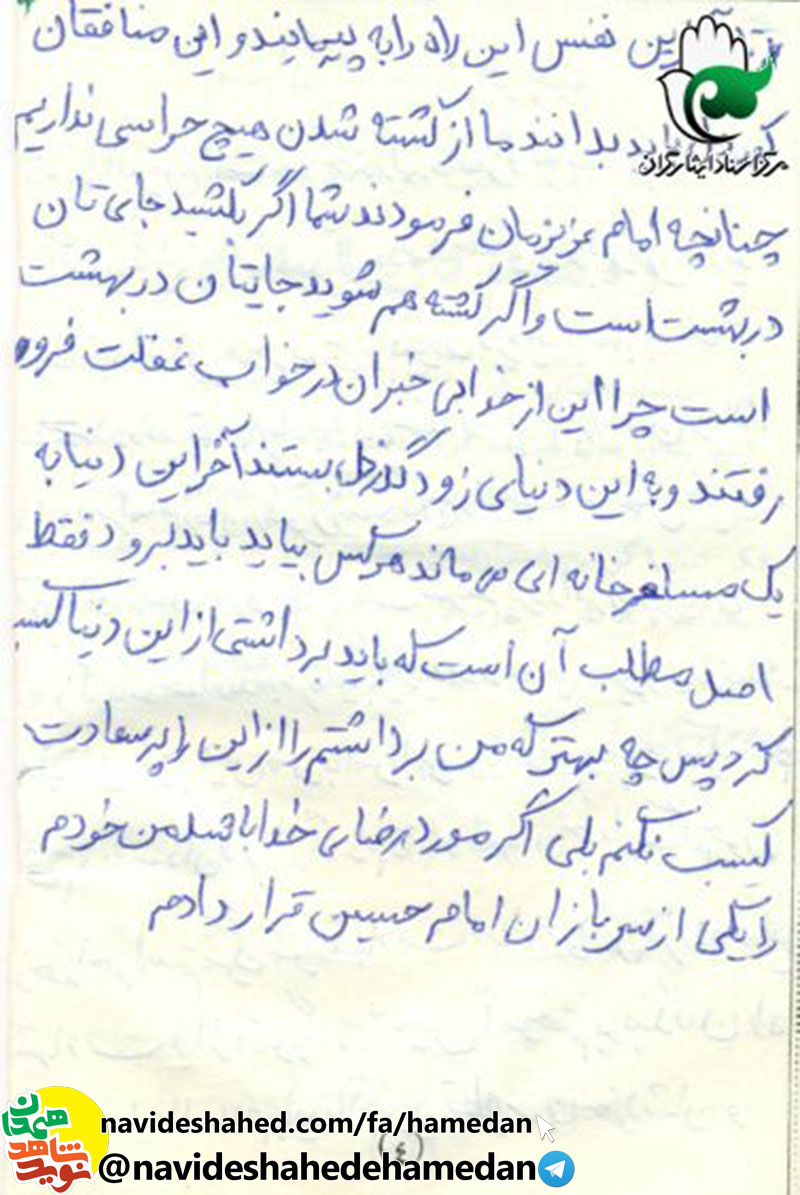 آخرین نفس این راه را به پیمایند و این منافقان
باید بدانند ما از کشته شدن هیچ حراسی نداریم
مرکز اسناد ایثارگران
چنانچه امام عزیزمان فرمودند شما اگر بکشید جای تان
در بهشت است و اگر کشته هم شوید جایتان در بهشت
است چرا این از خدا بی خبران در خواب غفلت فرو
رفتند و به این دنیای زود گذر دل بستند آخر این دنیا به
یک مسافرخانه ای می ماند هر کس بیاید باید برود فقط
اصل مطلب آن است که باید برداشتی از این دنیا کسب
کرد پس چه بهتر که من برداشتم را از این راه پر سعادت
کسب نکنم بلی اگر مورد رضای خدا باشد من خودم
را یکی از سربازان امام حسین قرار دادم
navideshahed.com/fa/hamedan
@navideshahedehamedan
٤
نوید شاهد همدان